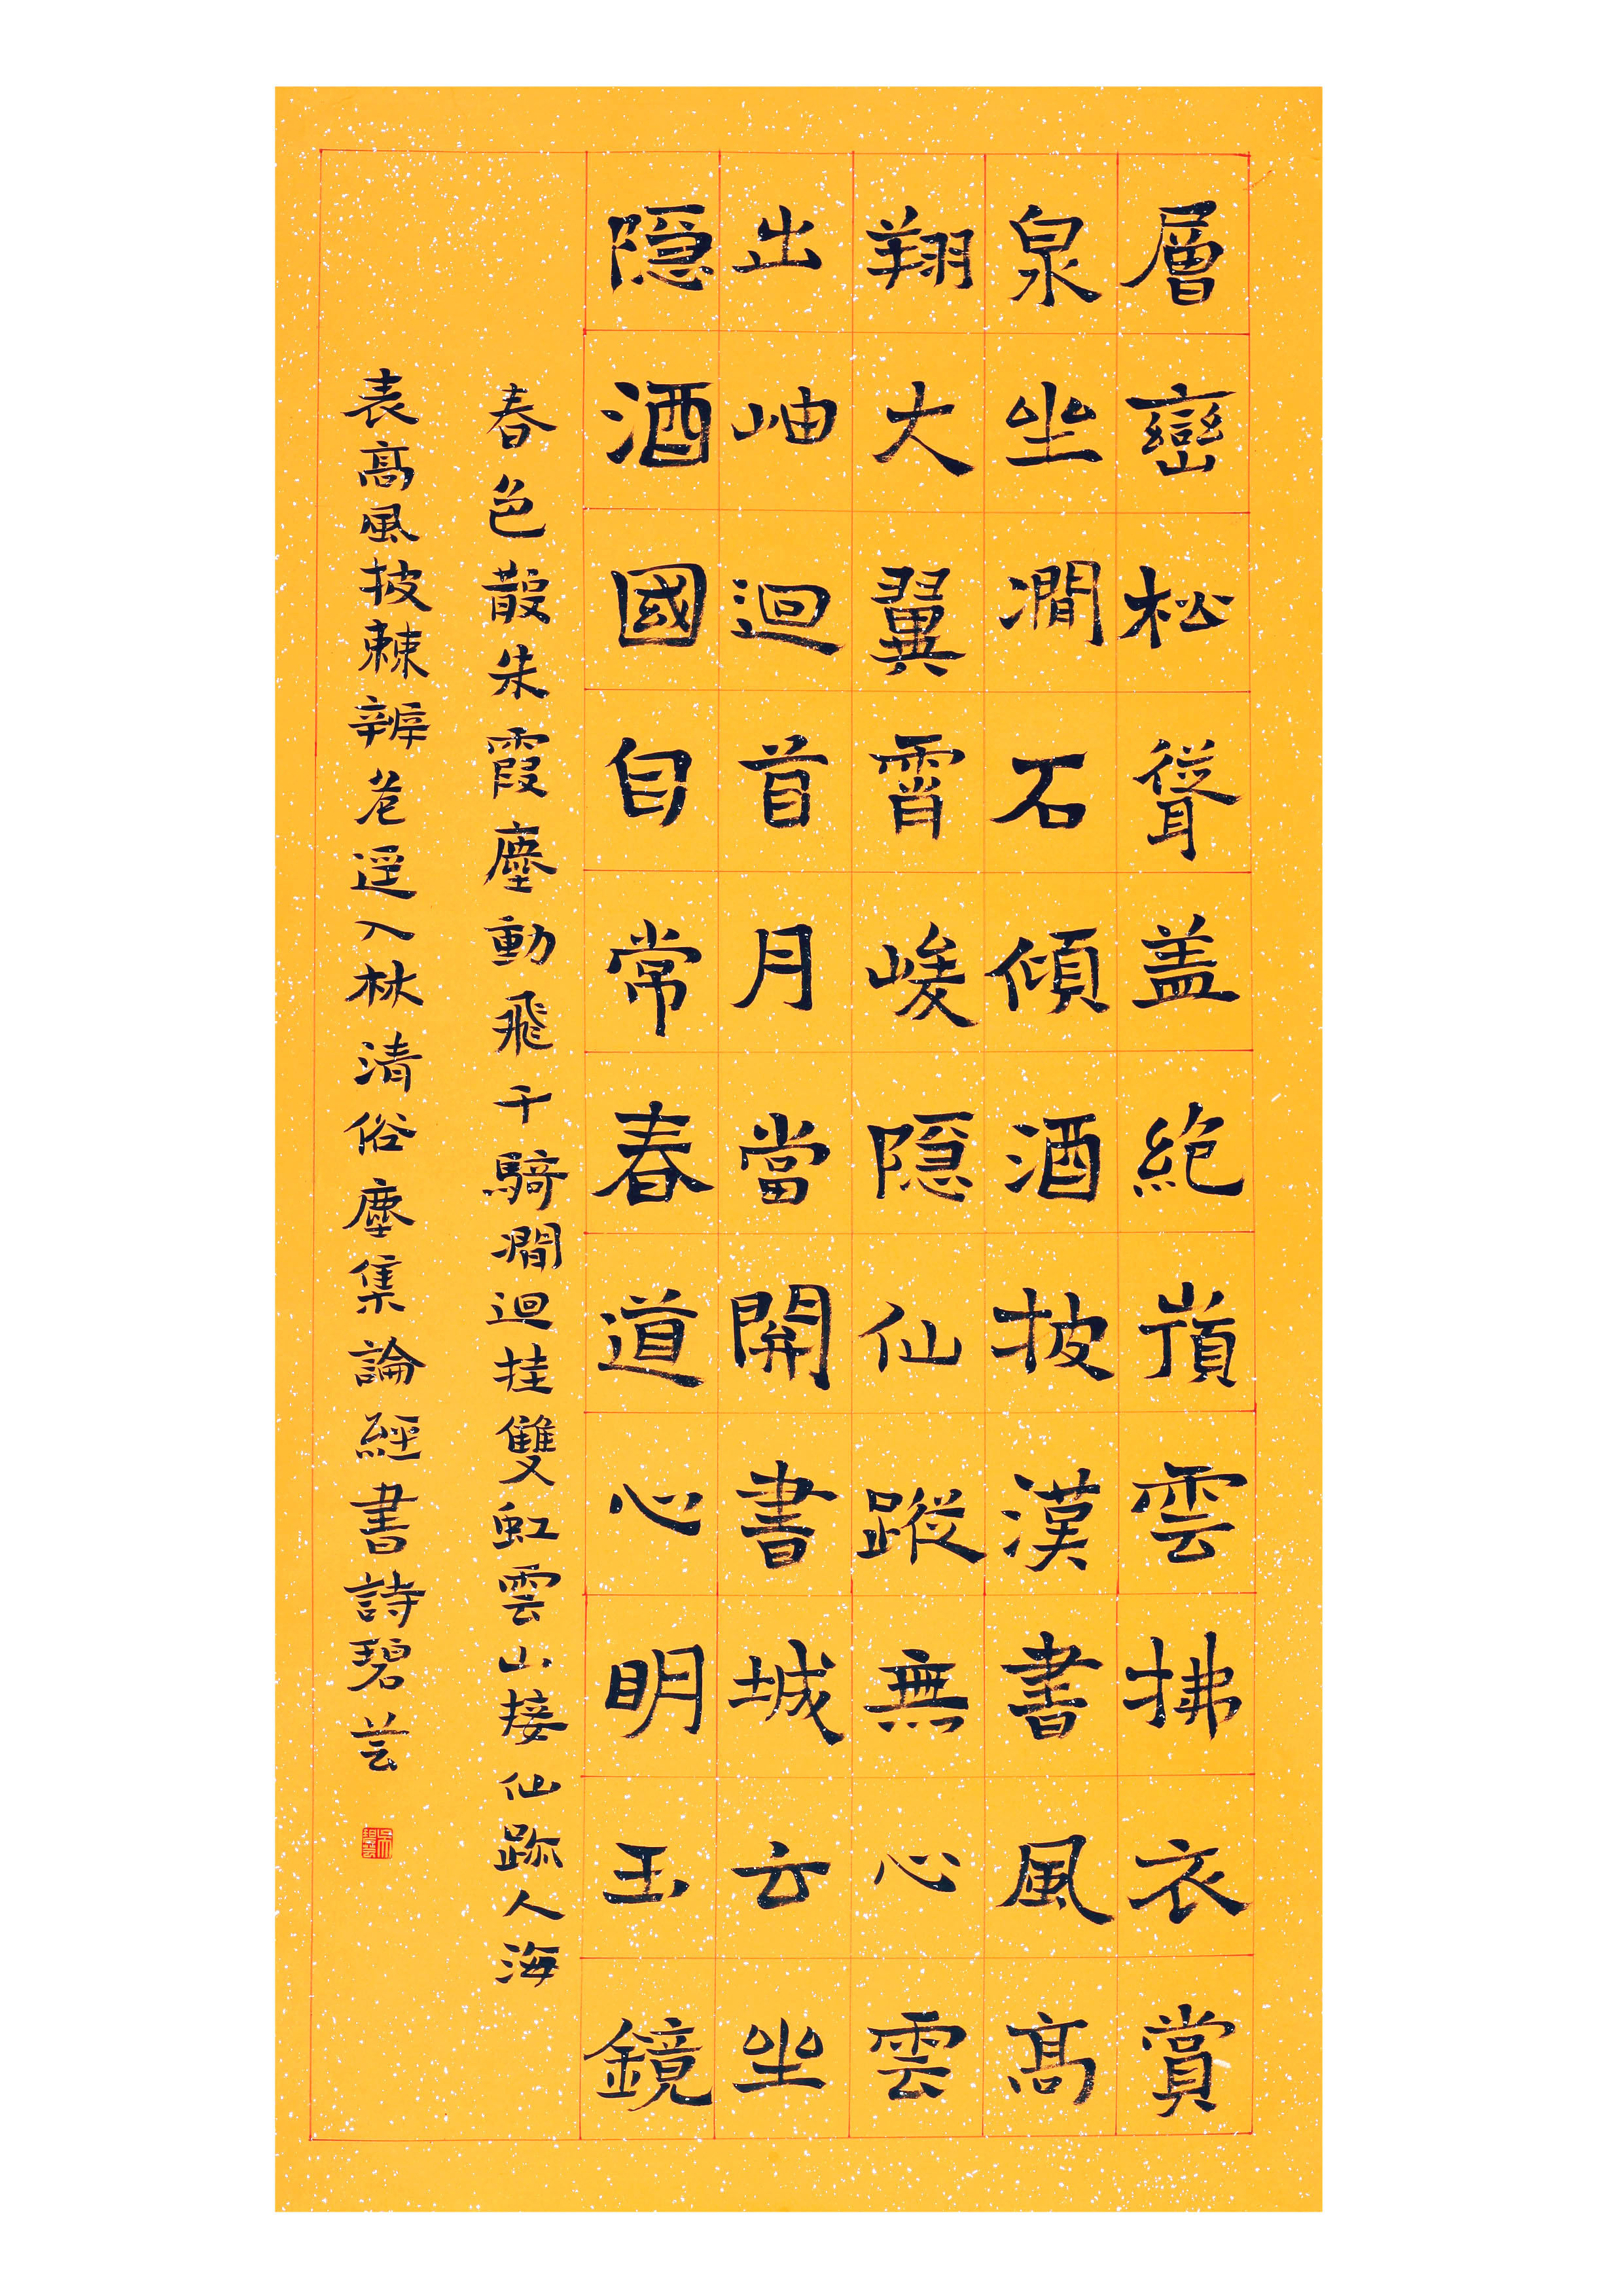 層巒松聳盖絶嶺雲拂衣賞
泉坐澗石傾酒披漢書風高
翔大翼霄峻隱仙蹤無心雲
出岫迴首月當開書城云坐
隱酒國自常春道心明玉鏡
春色散朱霞塵動飛千騎澗迴挂雙虹雲山接仙跡人海
表高風披棘辨巷逕入林清俗塵集論經書詩碧芸